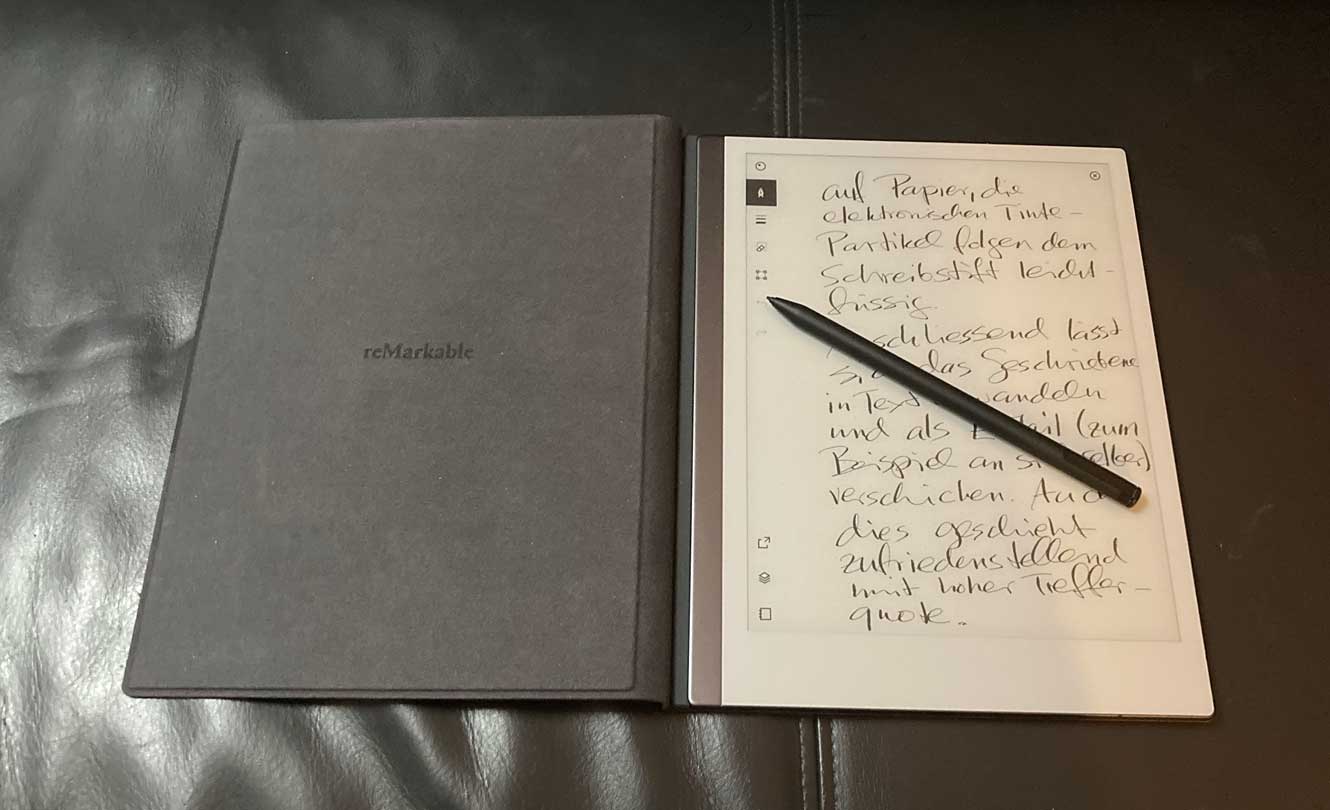 reMarkable
auf Papier, die
elektronischen Tinte-
Partikel folgen dem
Schreibstift leicht-
füssig.
schliessend lässt
das Geschriebene
in Text wandeln
und als (zum
Beispiel an selber)
verschicken. Auch
dies geschieht
zufriedenstellend
mit hoher Treffer-
quote..